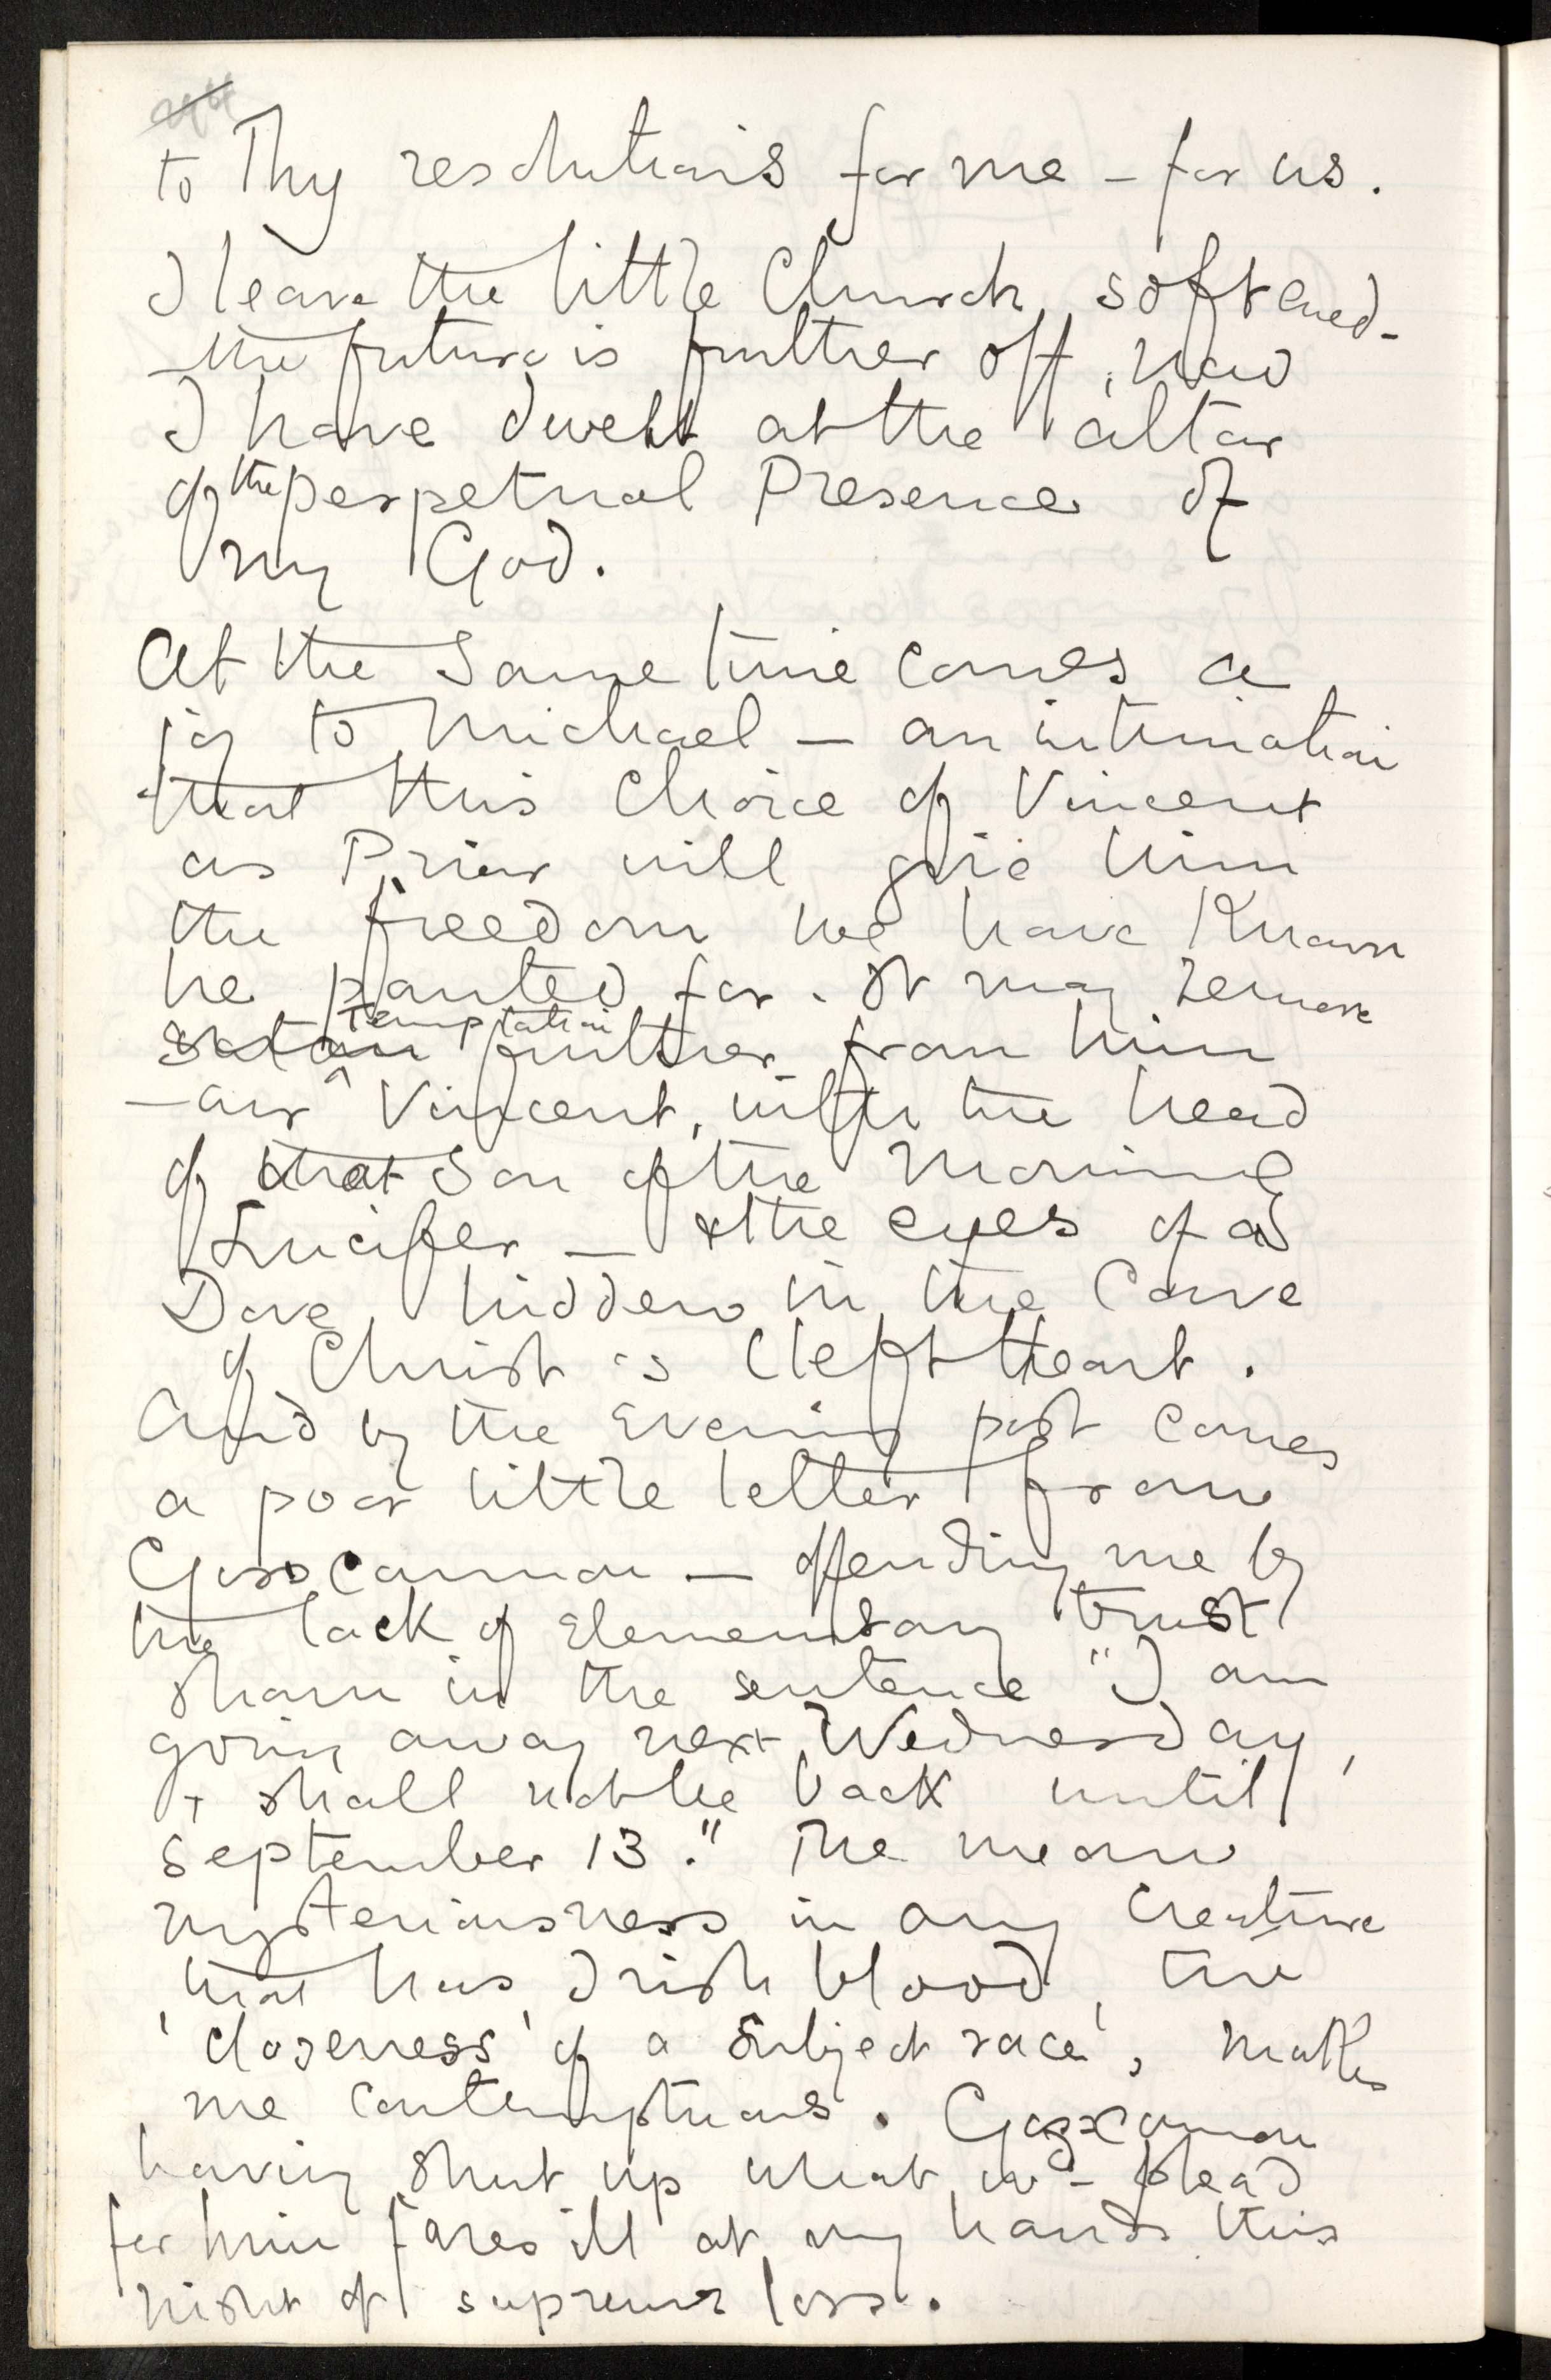 to Thy resolutions for me – for us.
I leave the little Church, softened –
– the future is further off, now
I have dwelt at the altar
of the perpetual Presence of
my God.
At the same time comes a
joy to Michael – an intimation
that this choice of Vincent
as Prior will give him
the freedom we have known
he panted for. It may remove
Satan Temptation further from him
– our Vincent, with the head
of that Son of the Morning
Lucifer – & the eyes of a
Dove hidden in the Cave
of Christ's Cleft Heart.
And by the Evening post comes
a poor little letter from
Goscannon – offending me by
the lack of Elementary trust
shown in the sentence "I am
going away next Wednesday,
+ shall not be back until
September 13." The mean
mysteriousness in any creature
that has Irish blood, the
'closeness' of a 'subject race', makes
me contemptuous. Goscannon
having shut up what wd. plead
for him fares ill at my hands this
night of supreme loss.